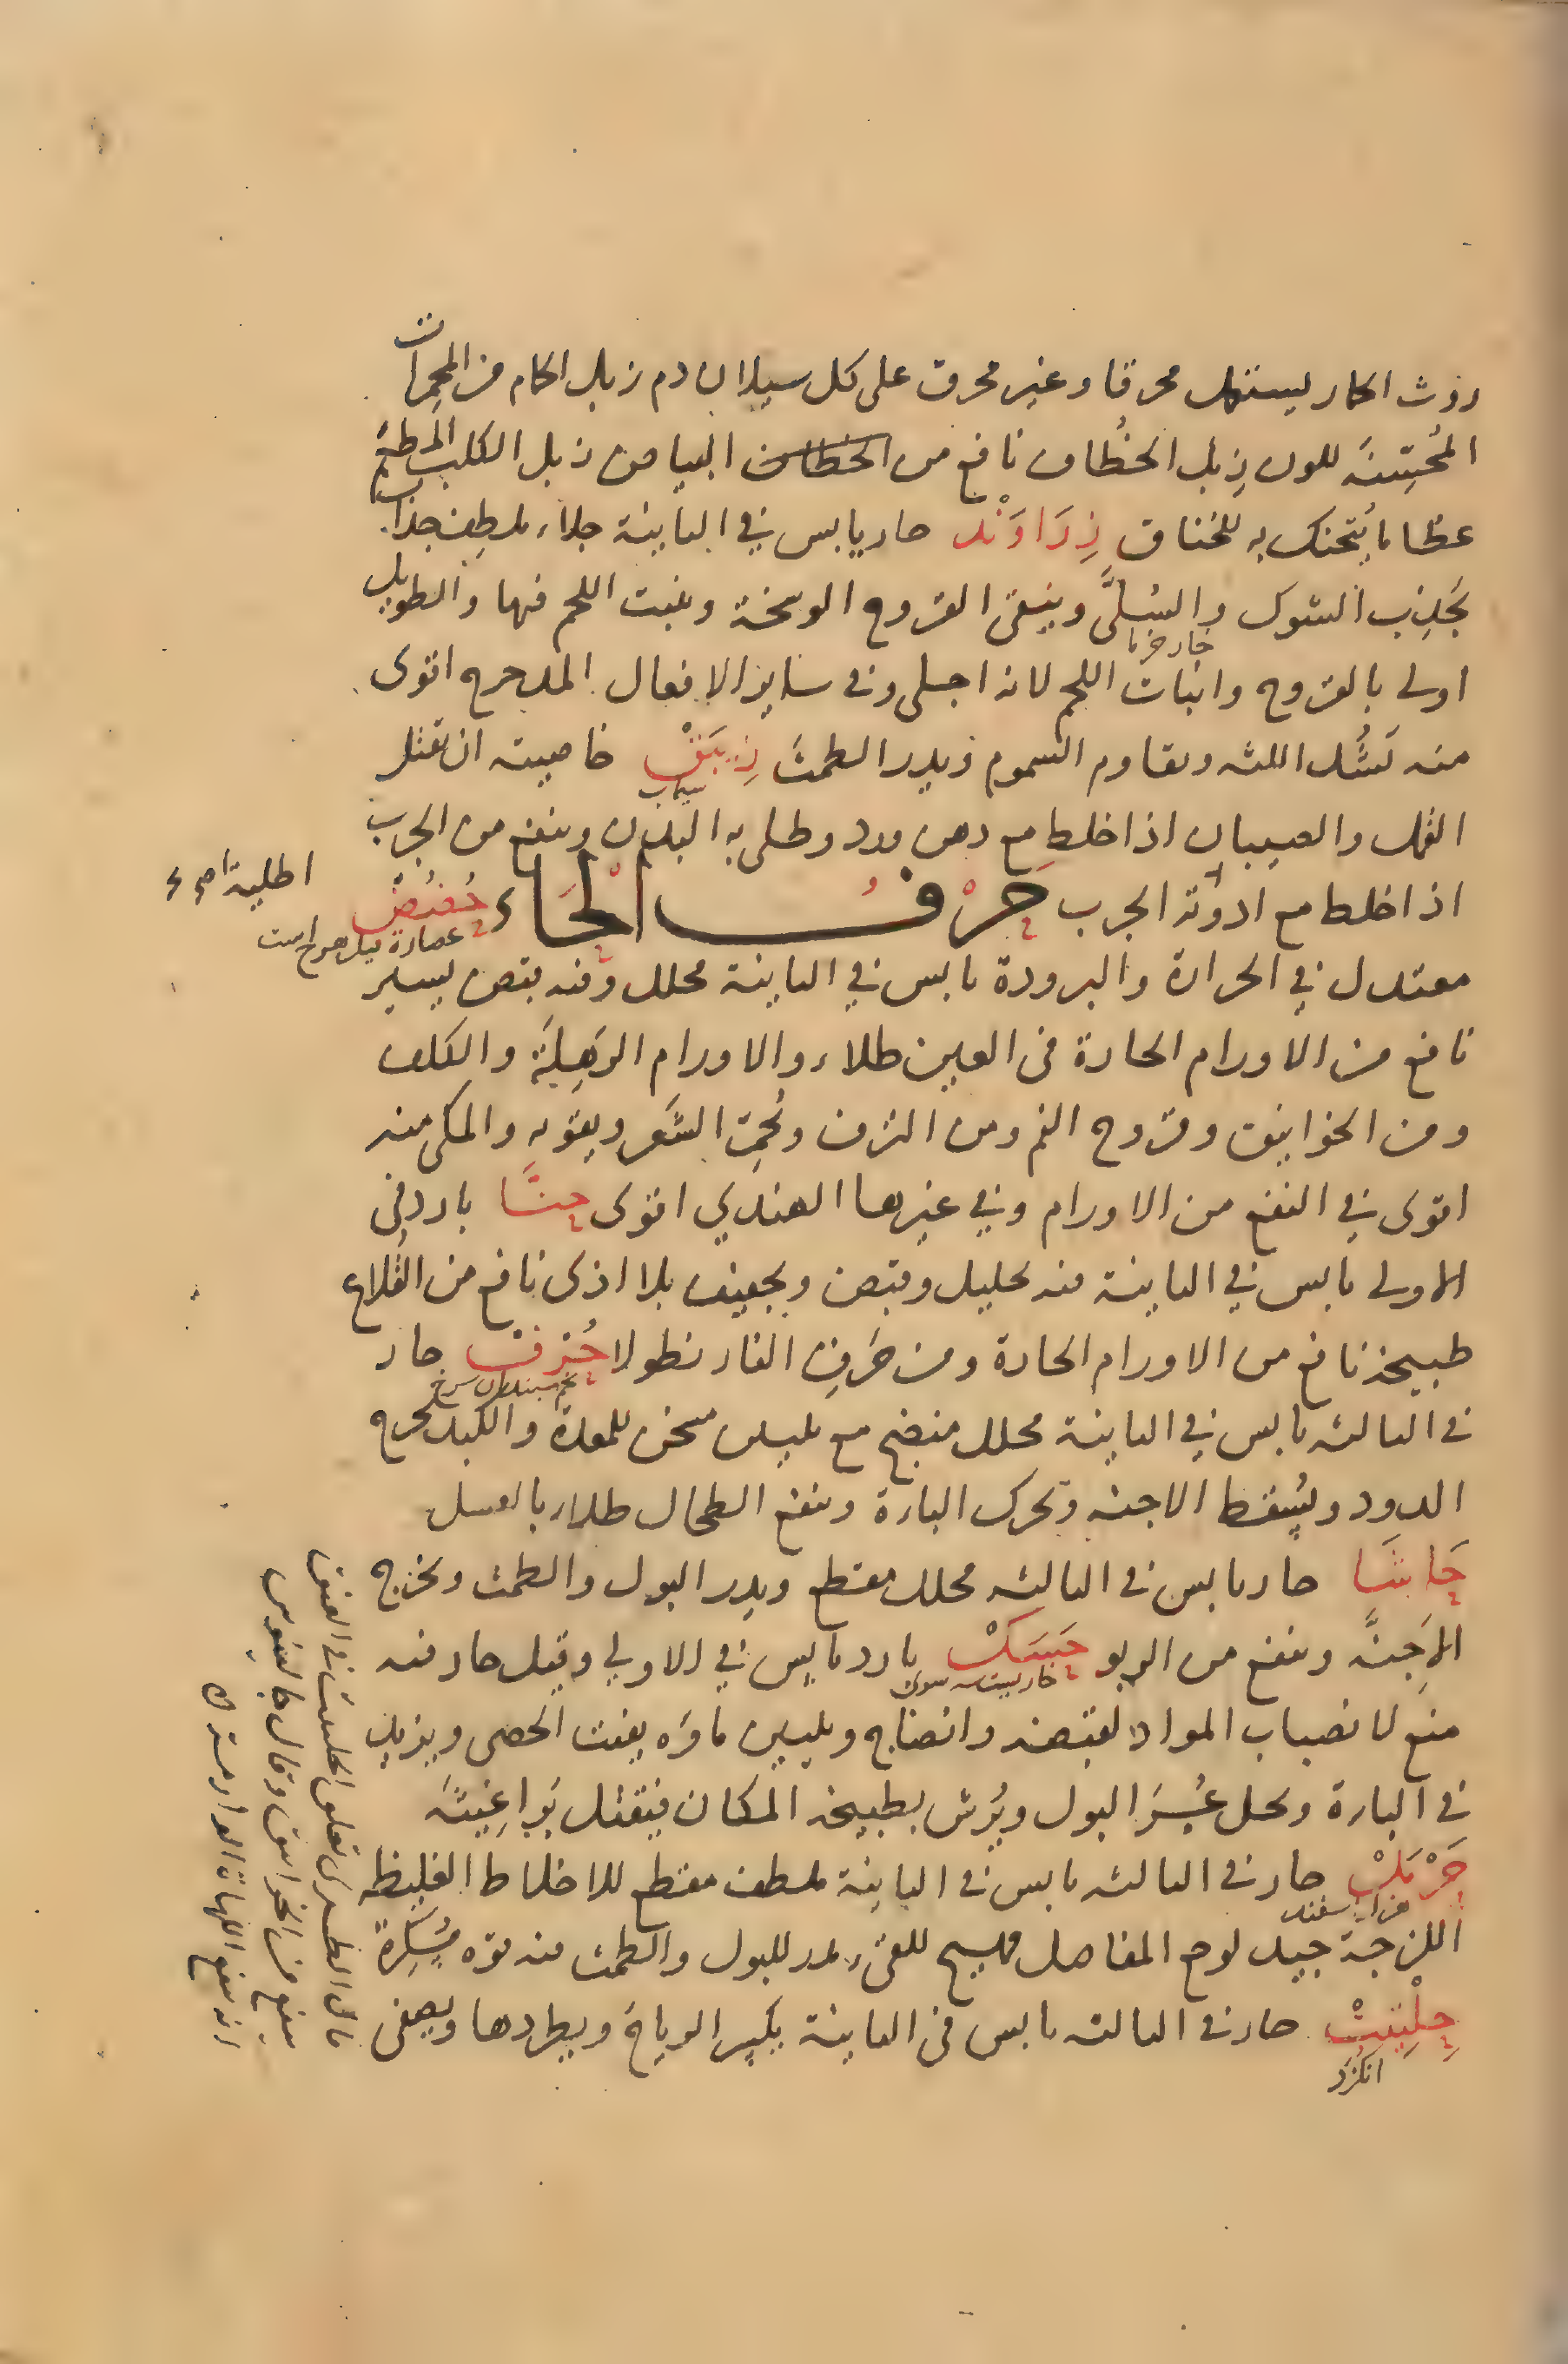 روث الحمار يستعمل محرقا وغير محرق على كل سيلان دم زبل الحمام من المحمرات
المُحسِّنة للون زِبل الخُطّاف نافع من البياض زبل الكلب المطعم
عظاما يُتحنك به للخناق زِرَاوَنْد حار يابس في الثانية جلاء ملطف جذاب
يجذب الشوك والسُلَّى وينقى القروح الوسخة وينبت اللحم فيها والطويل
اولى بالقروح وانبات اللحم لانه اجلى وفى سائر الافعال المدحرج اقوى
منه يَشُد اللثه ويقاوم السموم ويدر الطمث زِيبَقْ خاصيته ان يقتل
سيماب
القمل والصيبان اذا خلط مع دهن ورد وطلى به البدن وينفع من الجرب
اذا خلط مع ادوية الجرب حَرْفُ الْحَاء حُضُضْ
عصارة فيلزهرج است
معتدل في الحرارة والبرودة يابس في الثانية محلل وفيه قبض يسير
نافع من الاورام الحارة فى العين طلاء والاورام الرَهِلَة والكلف
ومن الخوانيق وقروح الفم ومن النزف ويُحمِّر الشعر ويقويه والمكى منه
اقوى في النفع من الاورام وفي غيرها الهندي اقوى حِنَّا بارد في
الاولى يابس في الثانية فيه تحليل وقبض وتجفيف بلا اذى نافع من القُلاع
طبيخه نافع من الاورام الحارة ومن حَرق النار نطولا حُرْف حار
تخم سبندان سرخ
فى الثالثه يابس في الثانية محلل منضج مع تليين مسخن للمعدة والكبد يخرج
الدود ويُسقط الاجنه ويحرك الباءة وينفع الطحال طلاء بالعسل
حَاشَا حار يابس فى الثالثه محلل مقطع ويدر البول والطمث ويخرج
الاَجِنَّه وينفع من الربو حَسَكْ بارد يابس في الاولى وقيل حار فيه
منع لانصباب المواد لقبضه وانضاج وتليين ماؤه يفتت الحصى ويزيد
فى الباءة ويحل عُسْرَ البول ويُرَش بطبيخه المكان فيقتل بَراغِيثَه
حَرْمَلْ حار فى الثالثه يابس فى الثانية ملطف مقطع للاخلاط الغليظه
اللزجة جيد لوجع المفاصل مهيج للقئ مدر للبول والطمث فيه قوه مُسْكِرة
حِلْتِيتْ حار فى الثالثه يابس فى الثانية يكسر الرياح ويطردها ويصفى
انكزد